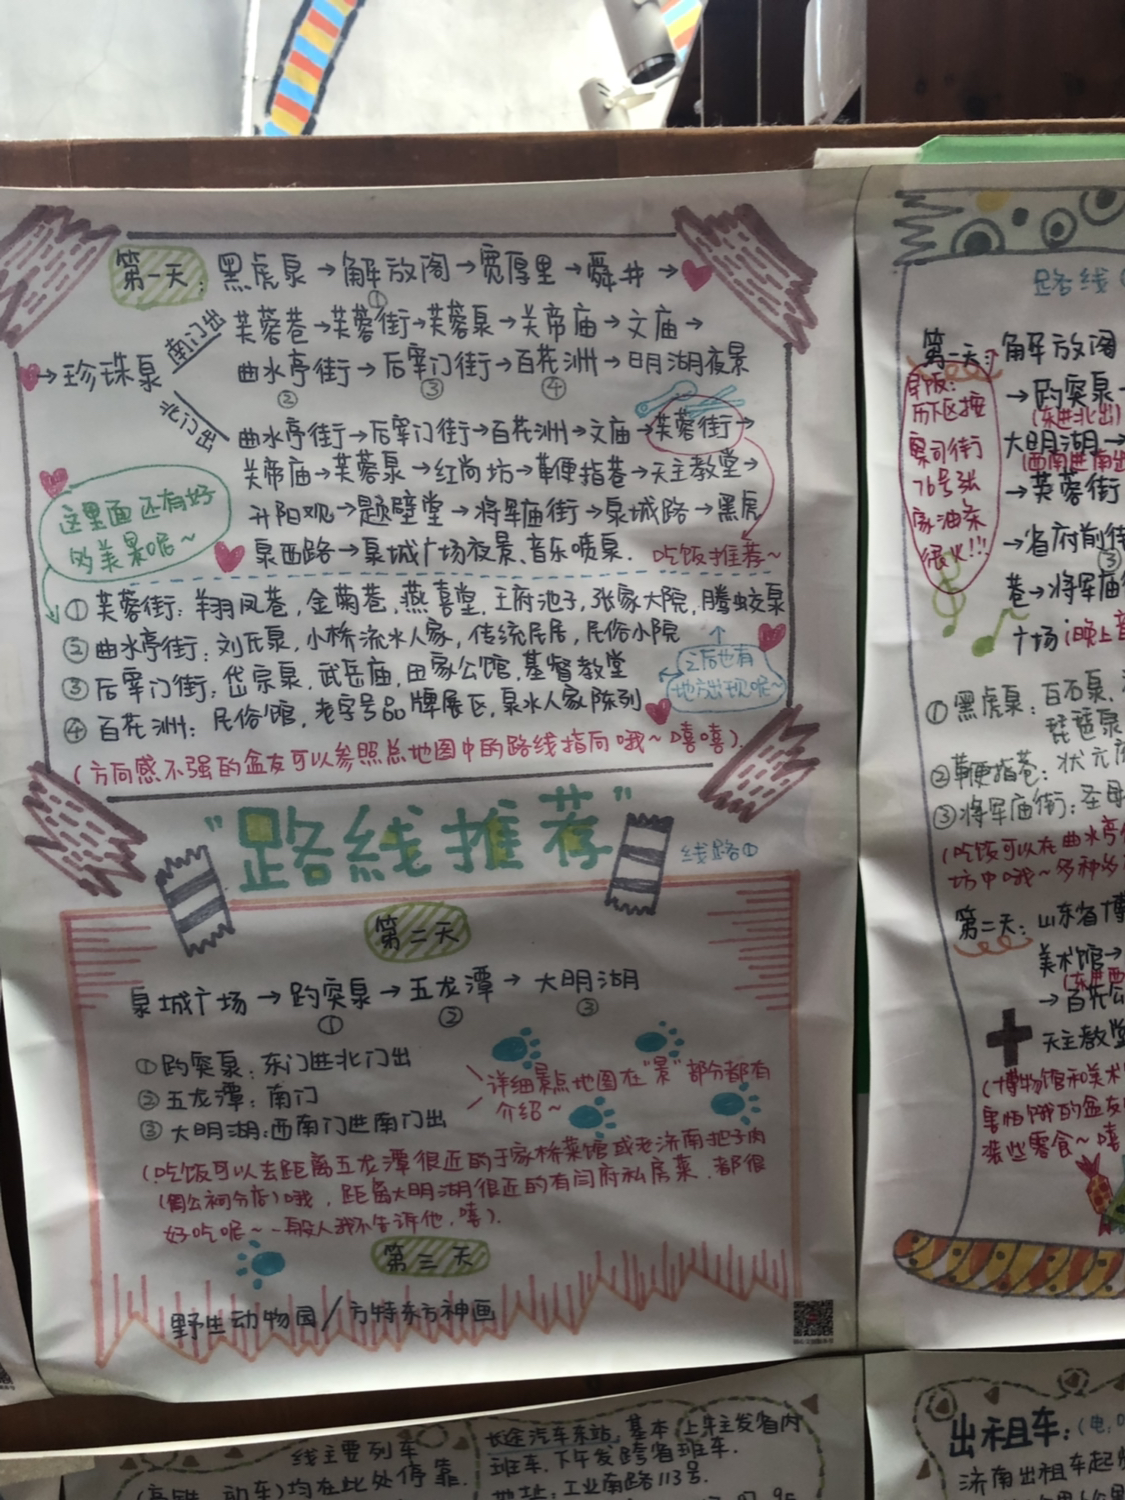 第一天：黑虎泉→解放阁→宽厚里→舜井→
①
→珍珠泉
南门出
芙蓉巷→芙蓉街→芙蓉泉→关帝庙→文庙→
曲水亭街→后宰门街→百花洲→日明湖夜景
② ③ ④
北门出
曲水亭街→后宰门街→百花洲→文庙→芙蓉街→
关帝庙→芙蓉泉→红尚坊→鞭指巷→天主教堂→
升阳观→题壁堂→将军庙街→泉城路→黑虎
泉西路→泉城广场夜景、音乐喷泉.
吃饭推荐~
这里面还有好
多美景呢~
①芙蓉街：翔凤巷,金菊巷,燕喜堂,王府池子,张家大院,腾蛟泉
②曲水亭街：刘氏泉,小桥流水人家,传统民居,民俗小院
③后宰门街：岱宗泉,武岳庙,田家公馆,基督教堂
④百花洲：民俗馆,老字号品牌展区,泉水人家陈列
之后也有
地方出现呢~
(方向感不强的盆友可以参照总地图中的路线指向哦~嘻嘻).
"路线推荐"
线路①
第二天
泉城广场→趵突泉→五龙潭→大明湖
① ② ③
①趵突泉：东门进北门出
②五龙潭：南门
③大明湖：西南门进南门出
详细景点地图在"景"部分都有
介绍~
(吃饭可以去距离五龙潭很近的于家桥菜馆或老济南把子肉
(闵公祠分店)哦，距离大明湖很近的有闫府私房菜，都很
好吃呢~一般人我不告诉他，嘻).
第三天
野生动物园/方特东方神画
路线
第一天：解放阁
→趵突泉→
(东进北出)
大明湖→
(西南进南出
→芙蓉街
→省府前街
③
巷→将军庙
广场(晚上
早饭：
历下区按
察司街
76号张
家油条
很火!!!
①黑虎泉：百石泉、
琵琶泉
②鞭指巷：状元府
③将军庙街：圣母
(吃饭可以在曲水亭
坊中哦~多种多
第二天：山东省博
美术馆→
(东进西
→百花公
天主教堂
(博物馆和美术
害怕饿的盆友
装些零食~嘻
线主要列车
(高铁、动车)均在此处停靠.
长途汽车东站,基本上午主发省内
班车,下午发跨省班车.
地址：工业南路113号.
出租车：(电
济南出租车起